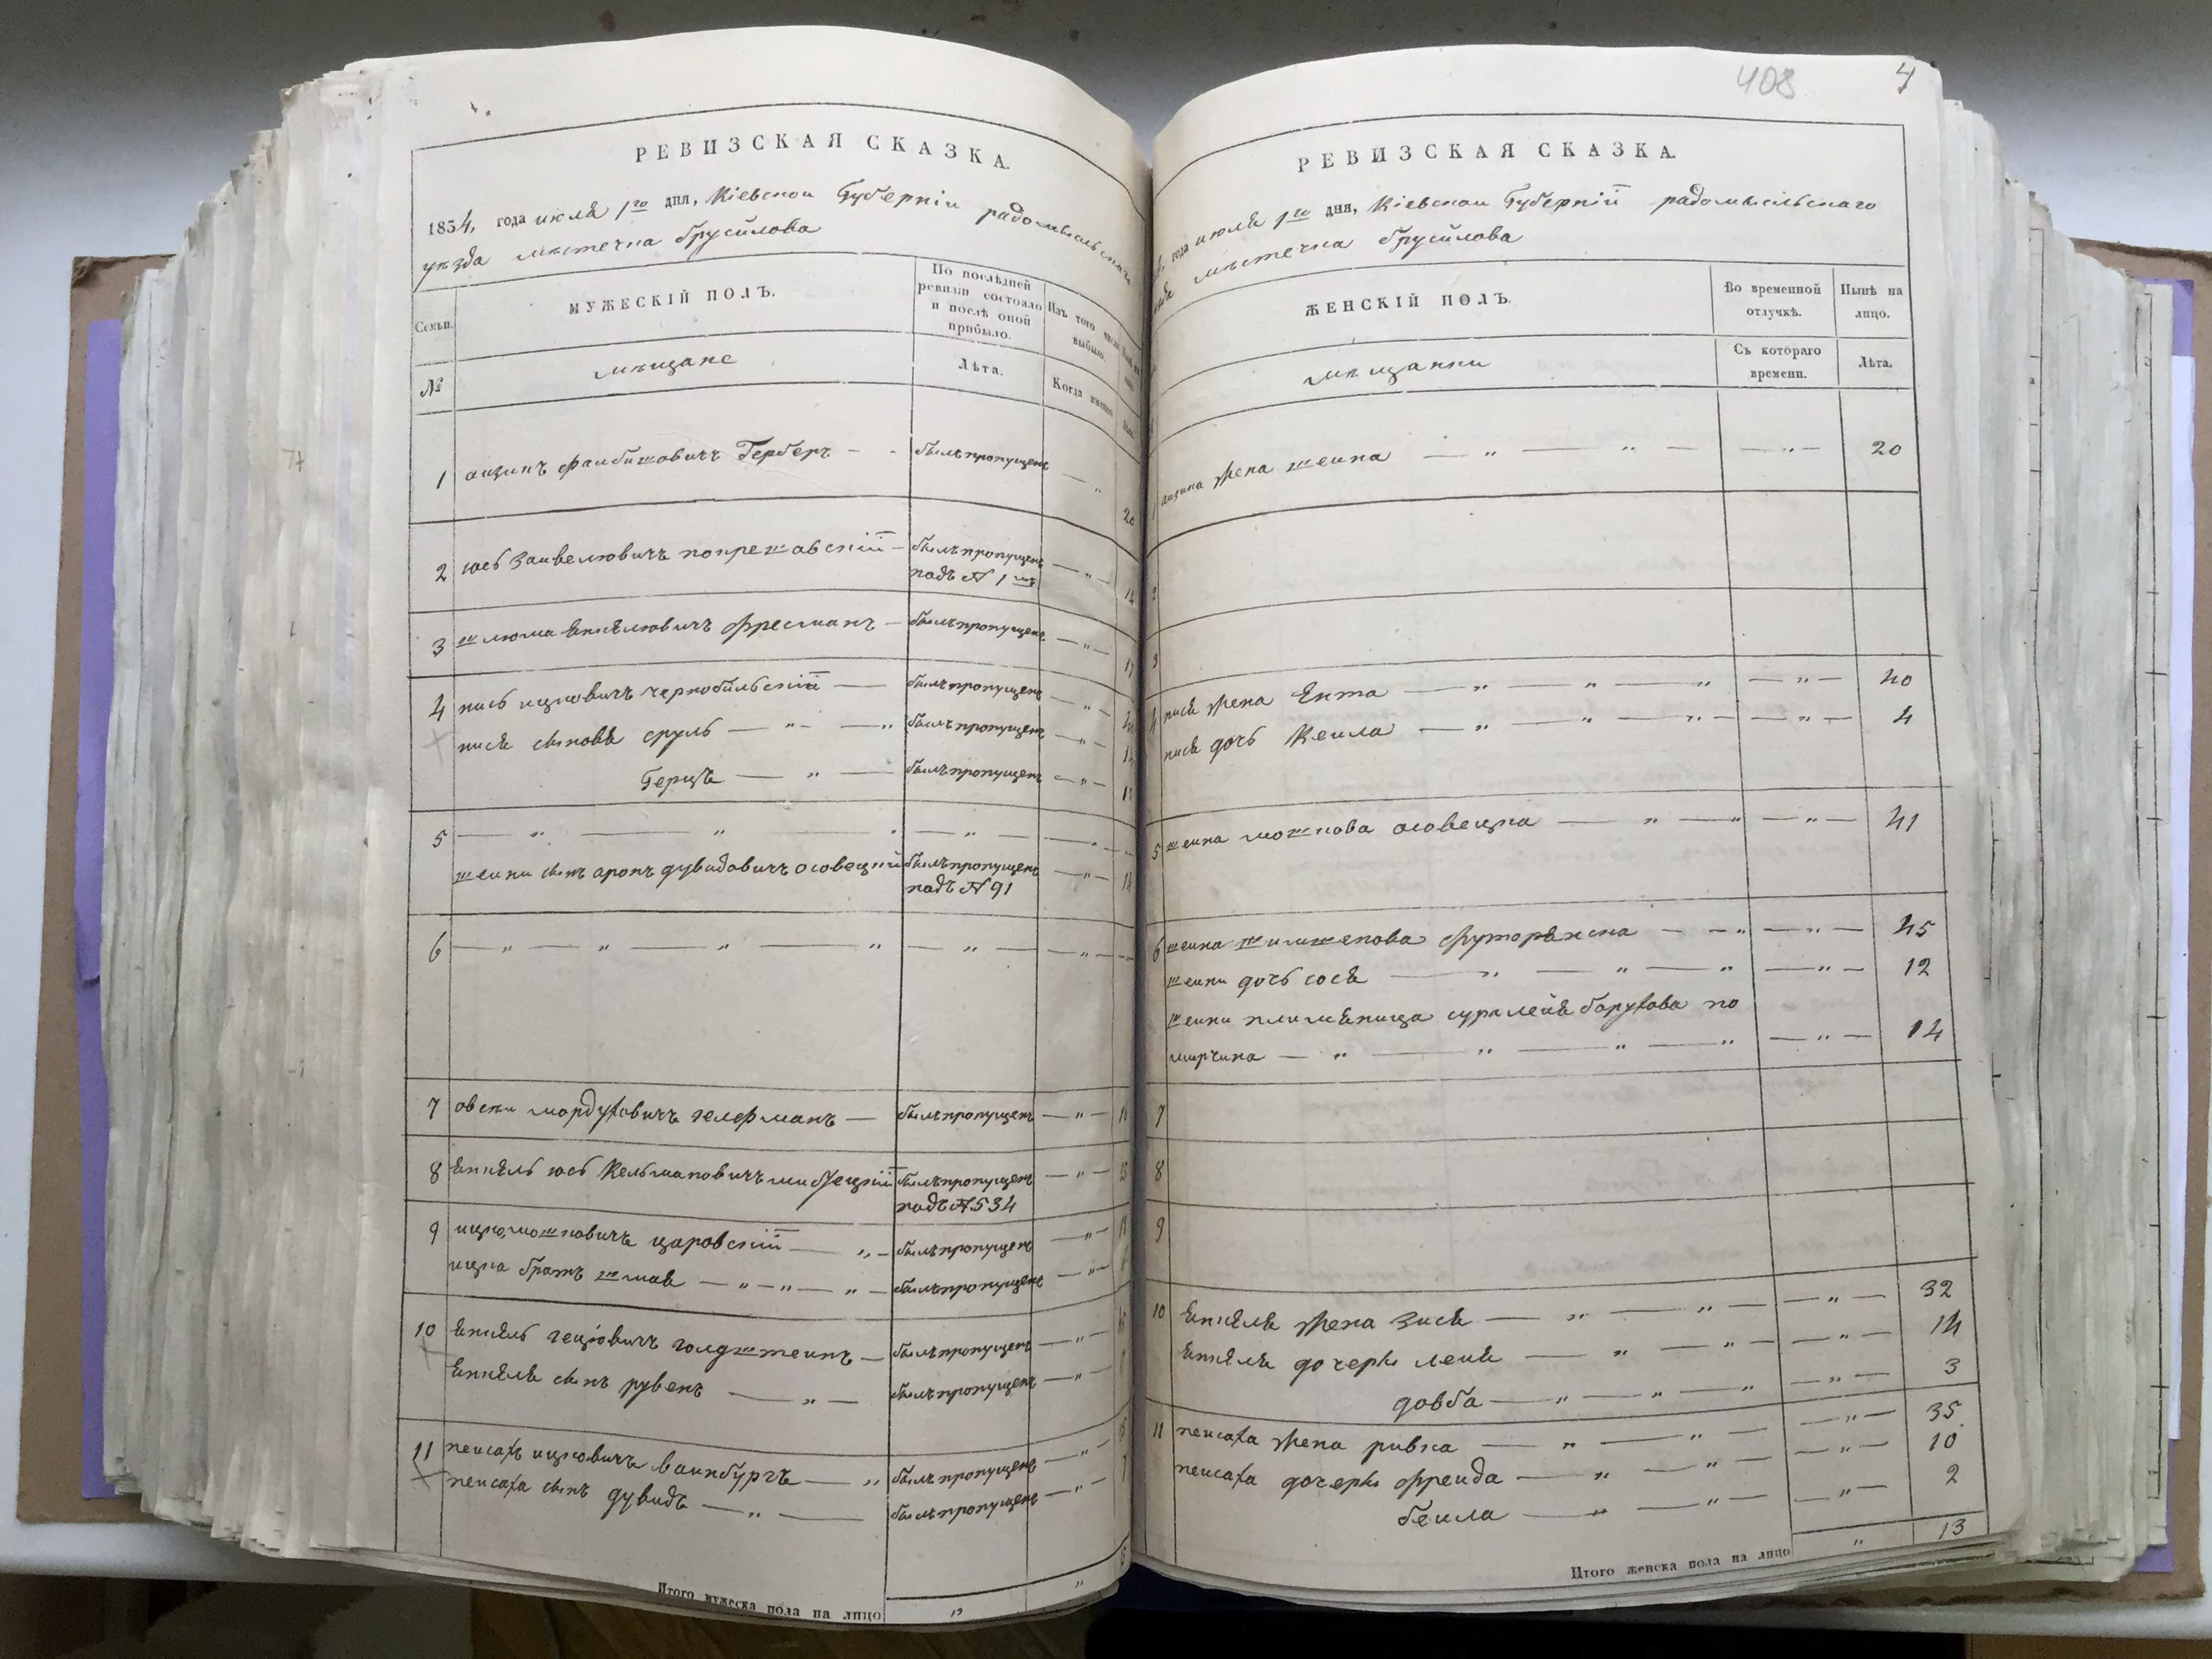 408
РЕВИЗСКАЯ СКАЗКА.
1854, года июля 1го дня, Кіевской Губерніи радомысльскаго
уѣзда мѣстечка брусилова
Семьи.
МУЖЕСКІЙ ПОЛЪ.
По послѣдней ревизіи состояло и послѣ оной прибыло.
Изъ того числа выбыло.
№
мѣщане
Лѣта.
Когда именно
1 айзикъ файбишовичъ Герберъ былъ пропущенъ 20
2 іось Зайвелювичъ покрашавскій былъ пропущенъ
подъ № 1мъ 14
3 шлиома янкелювичъ фресманъ былъ пропущенъ
4 нись ицковичъ чернобильскій былъ пропущенъ
нися сыновья сруль былъ пропущенъ
Герцъ былъ пропущенъ
5
шейни сынъ аронъ дувидовичъ осовецкій былъ пропущенъ
подъ № 91
6
7 овсей мордуховичъ гелфманъ былъ пропущенъ
8 янкель іось Кельмановичъ былъ пропущенъ
подъ № 534
9 ицко мошковичъ царовскій былъ пропущенъ
ицка братъ шмая былъ пропущенъ
10 янкель гецовичъ голдштейнъ былъ пропущенъ
янкеля сынъ рувенъ былъ пропущенъ
11 пейсахъ ицковичъ вайнбургъ былъ пропущенъ
пейсаха сынъ дувидъ былъ пропущенъ
Итого мужеска пола на лицо
РЕВИЗСКАЯ СКАЗКА.
года июля 1го дня, Кіевской Губерніи радомысльскаго
мѣстечка брусилова
ЖЕНСКІЙ ПОЛЪ.
Во временной отлучкѣ.
Нынѣ на лицо.
мѣщанки
Съ котораго времени.
Лѣта.
1 айзика жена шейна 20
2
3
4 нися жена Ента 40
нися дочь Кейла 4
5 шейна мошкова осовецка 41
6 шейна шимшенова футорянска 45
шейни дочь сося 12
шейни племяница сура лейя борухова по
мирчина 14
7
8
9
10 янкеля жена Зися 32
янкеля дочерь лейя 14
довба 3
11 пейсаха жена ривка 35
пейсаха дочерь фрейда 10
бейла 2
Итого женска пола на лицо 13